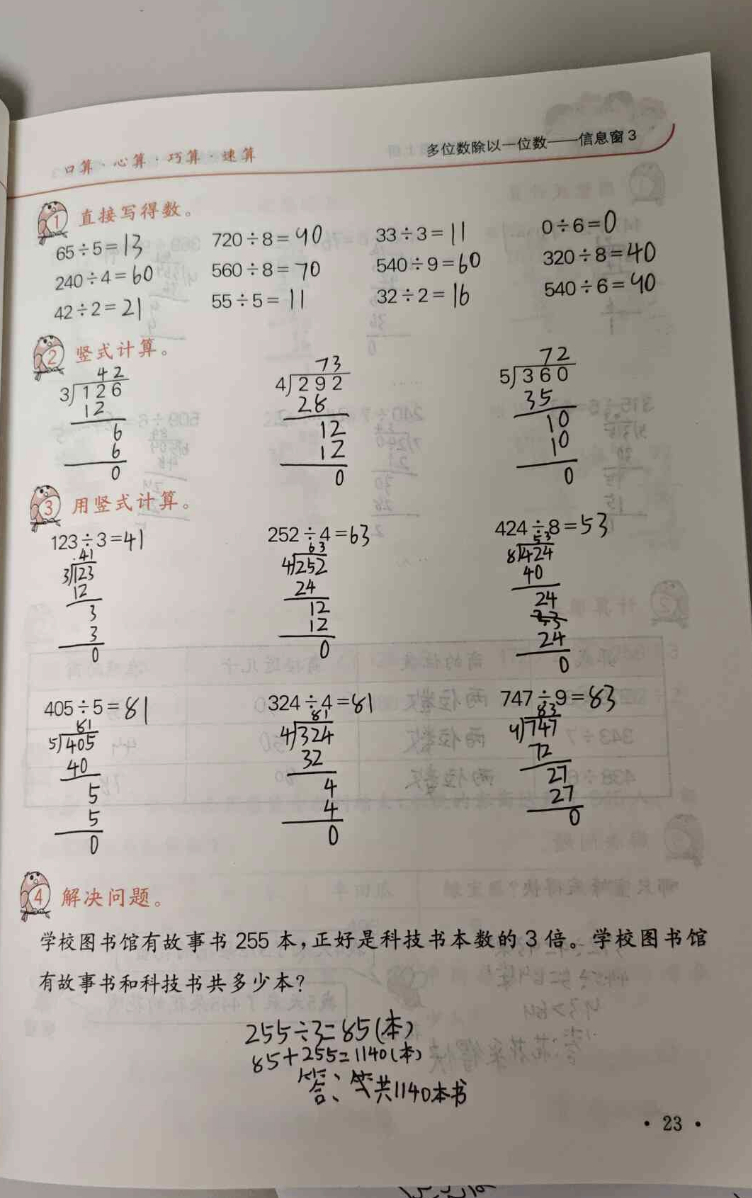 口算·心算·巧算·速算
多位数除以一位数——信息窗 3
1 直接写得数。
65÷5=13 720÷8=90 33÷3=11 0÷6=0
240÷4=60 560÷8=70 540÷9=60 320÷8=40
42÷2=21 55÷5=11 32÷2=16 540÷6=90
2 竖式计算。
42 73 72
3)126 4)292 5)360
12 28 35
6 12 10
6 12 10
0 0 0
3 用竖式计算。
123÷3=41 252÷4=63 424÷8=53
41 63 53
3)123 4)252 8)424
12 24 40
3 12 24
3 12 24
0 0 0
405÷5=81 324÷4=81 747÷9=83
81 81 83
5)405 4)324 9)747
40 32 72
5 4 27
5 4 27
0 0 0
4 解决问题。
学校图书馆有故事书 255 本,正好是科技书本数的 3 倍。学校图书馆
有故事书和科技书共多少本?
255÷3=85(本)
85+255=1140(本)
答:共1140本书
· 23 ·